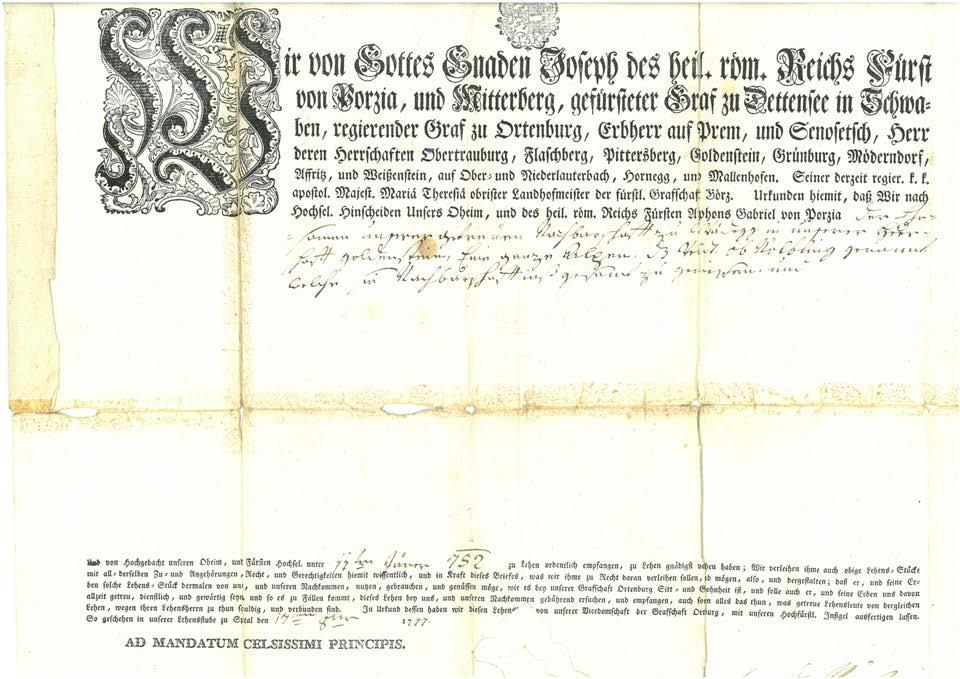 Wir von Gottes Gnaden Joseph des heil. röm. Reichs Fürst
von Porzia, und Mitterberg, gefürsteter Graf zu Dettensee in Schwa-
ben, regierender Graf zu Ortenburg, Erbherr auf Prem, und Senosetsch, Herr
deren Herrschaften Obertrauburg, Flaschberg, Pittersberg, Goldenstein, Grünburg, Möderndorf,
Affritz, und Weißenstein, auf Ober- und Niederlauterbach, Hornegg, und Mallenhofen. Seiner derzeit regier. k. k.
apostol. Majest. Mariä Theresiä obrister Landhofmeister der fürstl. Graffschaft Görz. Urkunden hiemit, daß Wir nach
Hochsel. Hinscheiden Unsers Oheim, und des heil. röm. Reichs Fürsten Alphons Gabriel von Porzia der Ehr-
samen unserer getreuen Nachbarschafft zu in unserer Herr-
schaft Goldenstein, Eine ganze Alpen genannt
welche zu
Und von Hochgedacht unseren Oheim, und Fürsten Hochsel. unter Jäner 752 zu Lehen ordentlich empfangen, zu Lehen gnädigst verliehen haben; Wir verleihen ihme auch obige Lehens-Stücke
mit all-derselben Zu- und Angehörungen, Recht, und Gerechtigkeiten hiemit wissentlich, und in Kraft dieses Briefes, was wir ihme zu Recht daran verleihen sollen, und mögen, also, und dergestalten; daß er, und seine Er-
ben solche Lehens-Stück dermalen von uns, und unseren Nachkommen, nutzen, gebrauchen, und genüssen möge, wie es bey unserer Grafschaft Ortenburg Sitt- und Gohnheit ist, und solle auch er, und seine Erben uns davon
allzeit getreu, dienstlich, und gewärtig seyn, und so es zu Fällen kommt, dieses Lehen bey uns, und unseren Nachkommen gebührend ersuchen, und empfangen, auch sonst alles das thun, was getreue Lehensleute von dergleichen
Lehen, wegen ihren Lehensherrn zu thun schuldig, und verbunden sind. In Urkund dessen haben wir diesen Lehens von unserer Vicedomschaft der Grafschaft Orburg, mit unseren Hochfürstl. Insigel ausfertigen lassen.
So geschehen in unserer Lehensstube zu Spital den 1777.
AD MANDATUM CELSISSIMI PRINCIPIS.